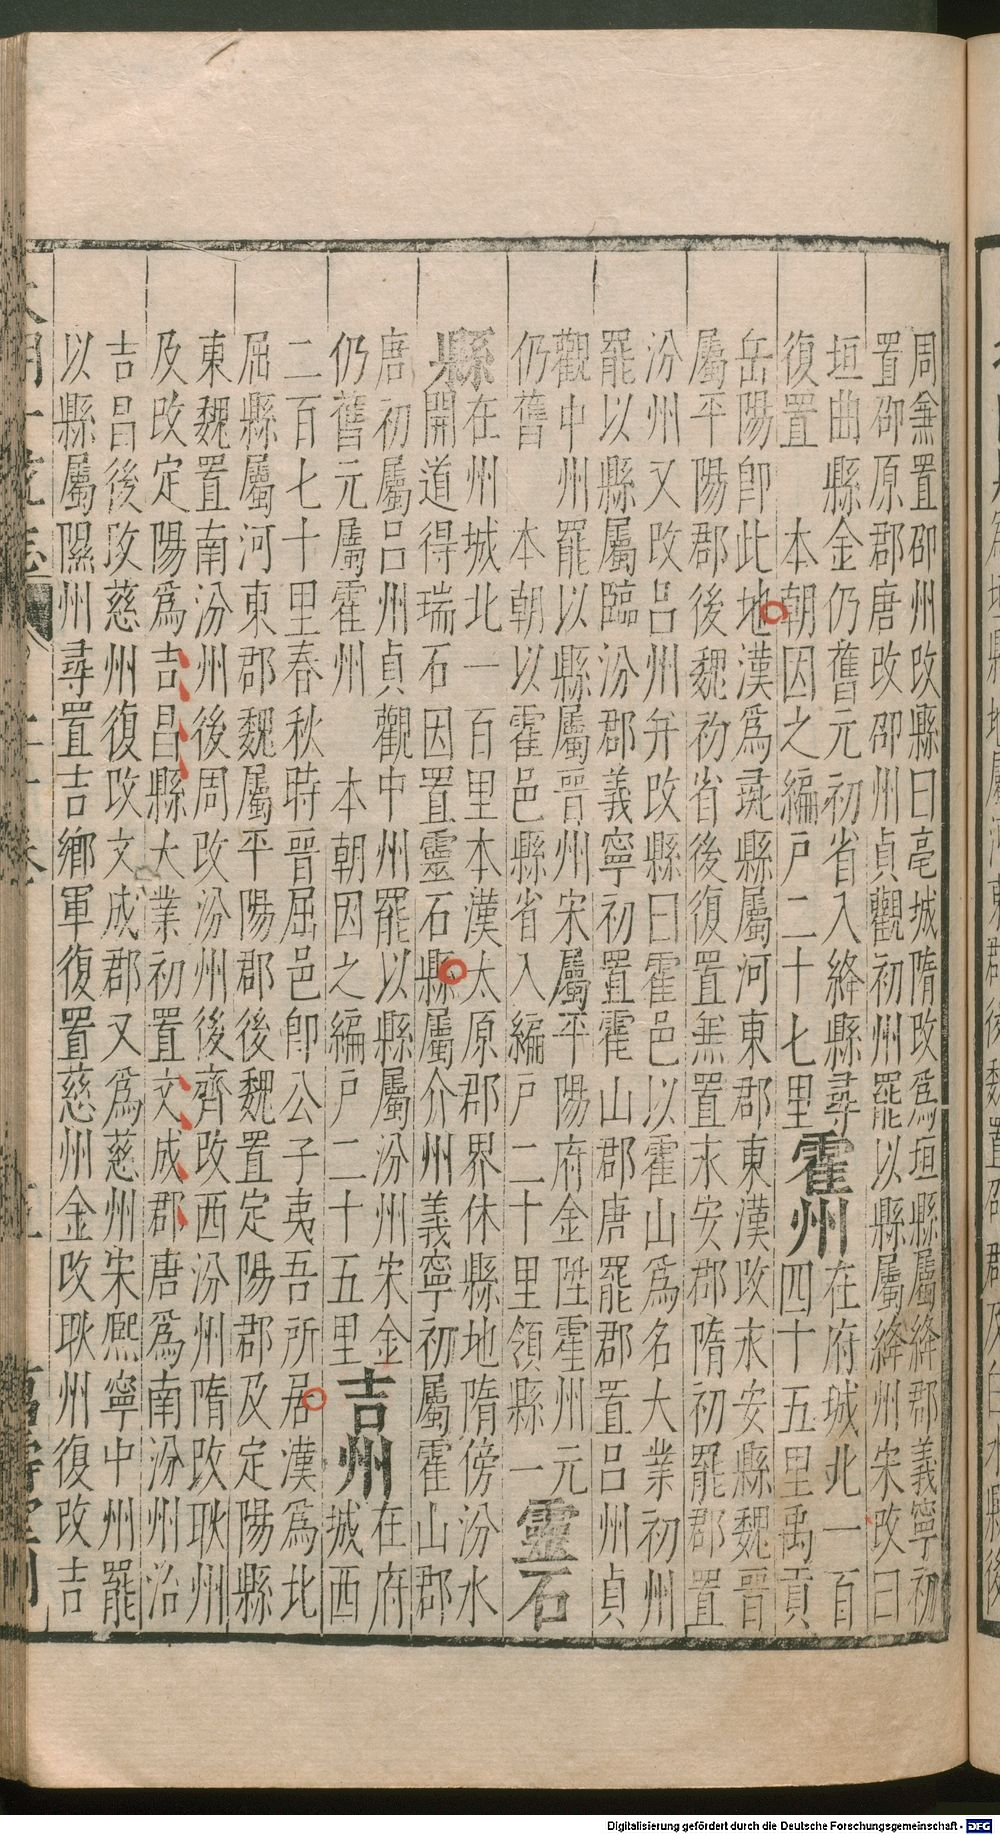 周兼置卲州改縣曰亳城隋改爲垣縣屬絳郡義寧初
置卲原郡唐改卲州貞觀初州罷以縣屬絳州宋改曰
垣曲縣金仍舊元初省入絳縣尋
復置 本朝因之編户二十七里
霍州
在府城北一百
四十五里禹貢
岳陽卽此地漢爲彘縣屬河東郡東漢改永安縣魏晉
屬平陽郡後魏初省後復置兼置永安郡隋初罷郡置
汾州又改呂州弁改縣曰霍邑以霍山爲名大業初州
罷以縣屬臨汾郡義寧初置霍山郡唐罷郡置呂州貞
觀中州罷以縣屬晉州宋屬平陽府金陞霍州元
仍舊 本朝以霍邑縣省入編户二十里領縣一
靈石
縣
在州城北一百里本漢太原郡界休縣地隋傍汾水
開道得瑞石因置靈石縣屬介州義寧初屬霍山郡
唐初屬呂州貞觀中州罷以縣屬汾州宋金
仍舊元屬霍州 本朝因之編户二十五里
吉州
在府
城西
二百七十里春秋時晉屈邑卽公子夷吾所居漢爲北
屈縣屬河東郡魏屬平陽郡後魏置定陽郡及定陽縣
東魏置南汾州後周改汾州後齊改西汾州隋改耿州
及改定陽爲吉昌縣大業初置文成郡唐爲南汾州治
吉昌後改慈州復改文成郡又爲慈州宋熙寧中州罷
以縣屬隰州尋置吉鄉軍復置慈州金改耿州復改吉